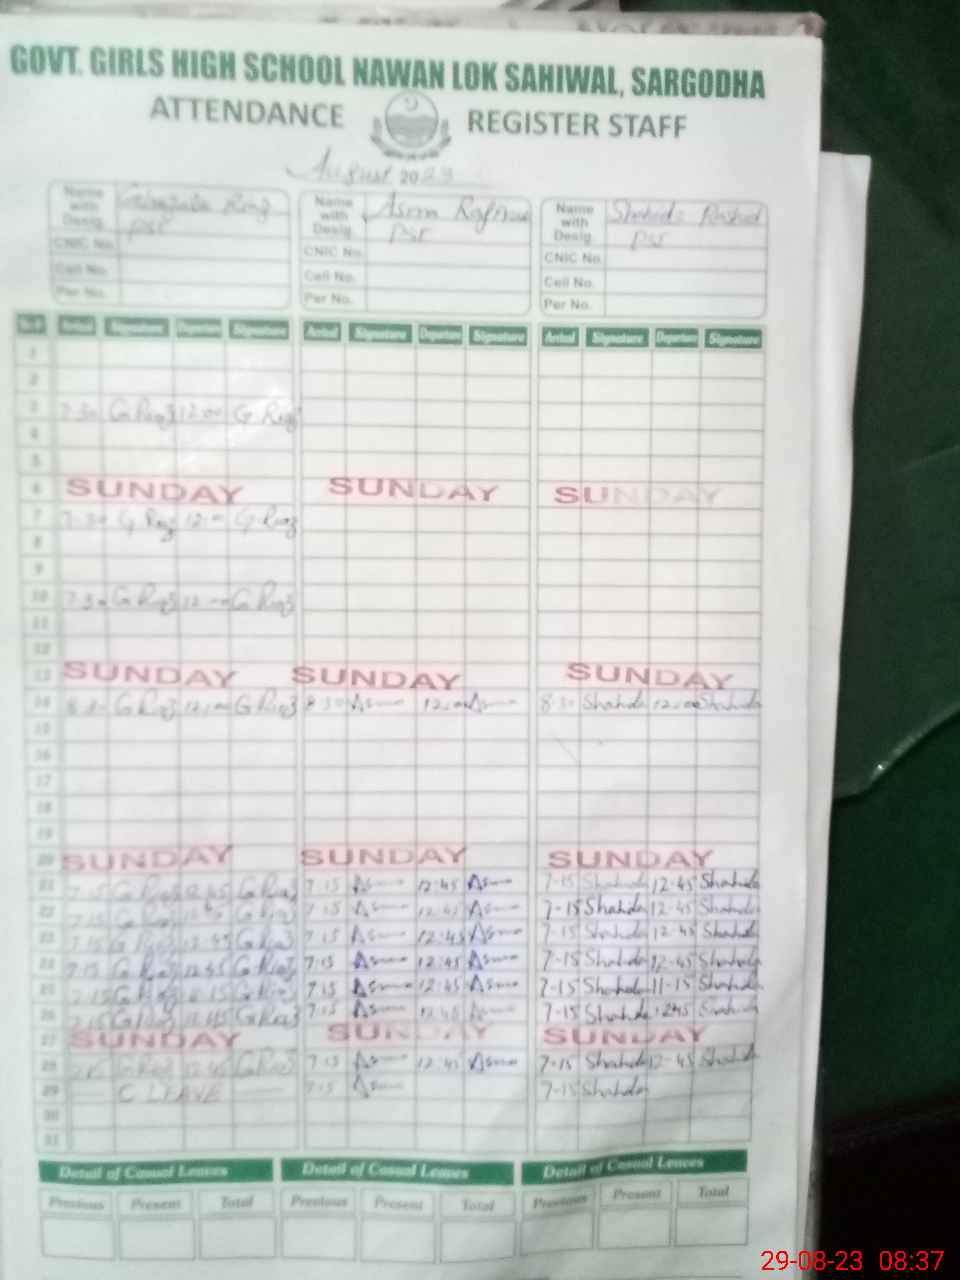 GOVT. GIRLS HIGH SCHOOL NAWAN LOK SAHIWAL, SARGODHA
ATTENDANCE REGISTER STAFF
August 2023
Name with Desig. Riaz PST Name with Desig. Asma PST Name with Desig. Shahida Rashid PST
CNIC No. CNIC No. CNIC No.
Cell No. Cell No. Cell No.
Per No. Per No. Per No.
Arrival Signature Departure Signature Arrival Signature Departure Signature Arrival Signature Departure Signature
1
2
3 7-30 G Riaz 12:00 G Riaz
4
5
6 SUNDAY SUNDAY SUNDAY
7 7-30 G Riaz 12:00 G Riaz
8
9
10 7-30 G Riaz 12:00 G Riaz
11
12
13 SUNDAY SUNDAY SUNDAY
14 8-30 G Riaz 12:00 G Riaz 8-30 Asma 12:00 Asma 8-30 Shahida 12:00 Shahida
15
16
17
18
19
20 SUNDAY SUNDAY SUNDAY
21 7-15 G Riaz 12:45 G Riaz 7-15 Asma 12:45 Asma 7-15 Shahida 12-45 Shahida
22 7-15 G Riaz 12:45 G Riaz 7-15 Asma 12:45 Asma 7-15 Shahida 12-45 Shahida
23 7-15 G Riaz 12:45 G Riaz 7-15 Asma 12:45 Asma 7-15 Shahida 12-45 Shahida
24 7-15 G Riaz 12:45 G Riaz 7-15 Asma 12:45 Asma 7-15 Shahida 12-45 Shahida
25 7-15 G Riaz 11-15 G Riaz 7-15 Asma 12:45 Asma 7-15 Shahida 11-15 Shahida
26 7-15 G Riaz 12:45 G Riaz 7-15 Asma 12:45 Asma 7-15 Shahida 1245 Shahida
27 SUNDAY SUNDAY SUNDAY
28 7-15 G Riaz 12:45 G Riaz 7-15 Asma 12:45 Asma 7-15 Shahida 12-45 Shahida
29 C LEAVE 7-15 Asma 7-15 Shahida
30
31
Detail of Casual Leaves Detail of Casual Leaves Detail of Casual Leaves
Previous Present Total Previous Present Total Previous Present Total
29-08-23 08:37